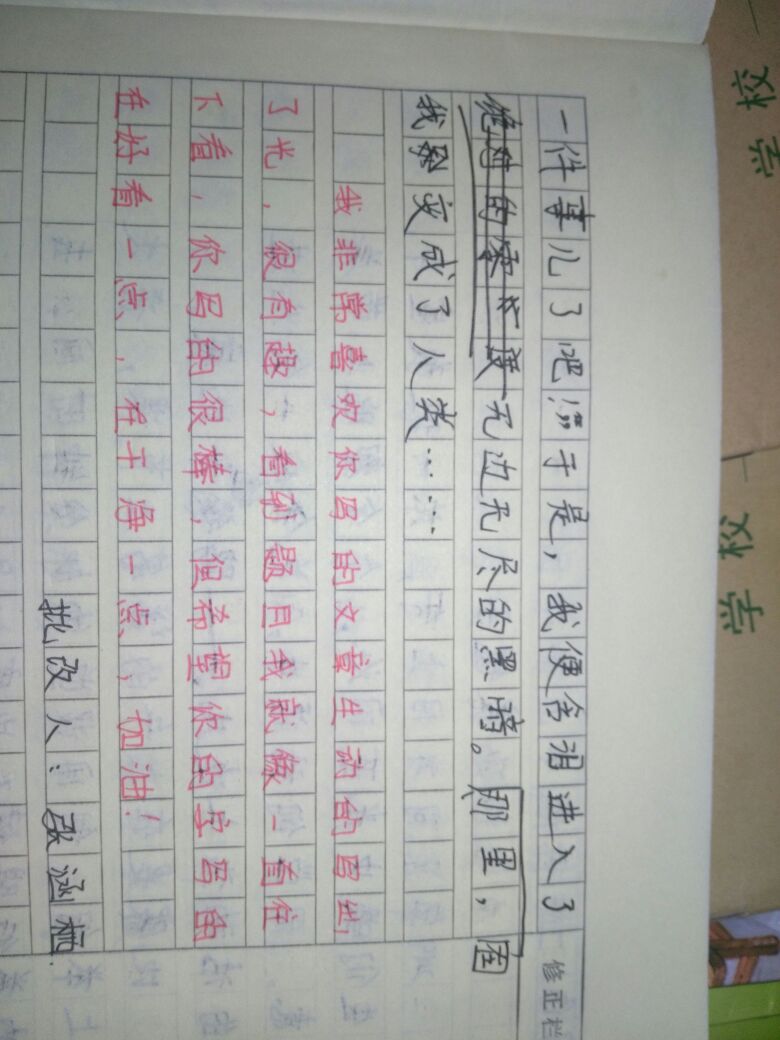 一件事儿了吧!”于是,我便含泪进入了
绝对的寂无边无尽的黑暗。那里,困
我变成了人类……
我非常喜欢你写的文章生动的写出
了光,很有趣,看到题目我就像一直往
下看,你写的很棒,但希望你的字写的
在好看一点,在干净一点,加油!
批改人:张涵栖
修正栏
学校
学校